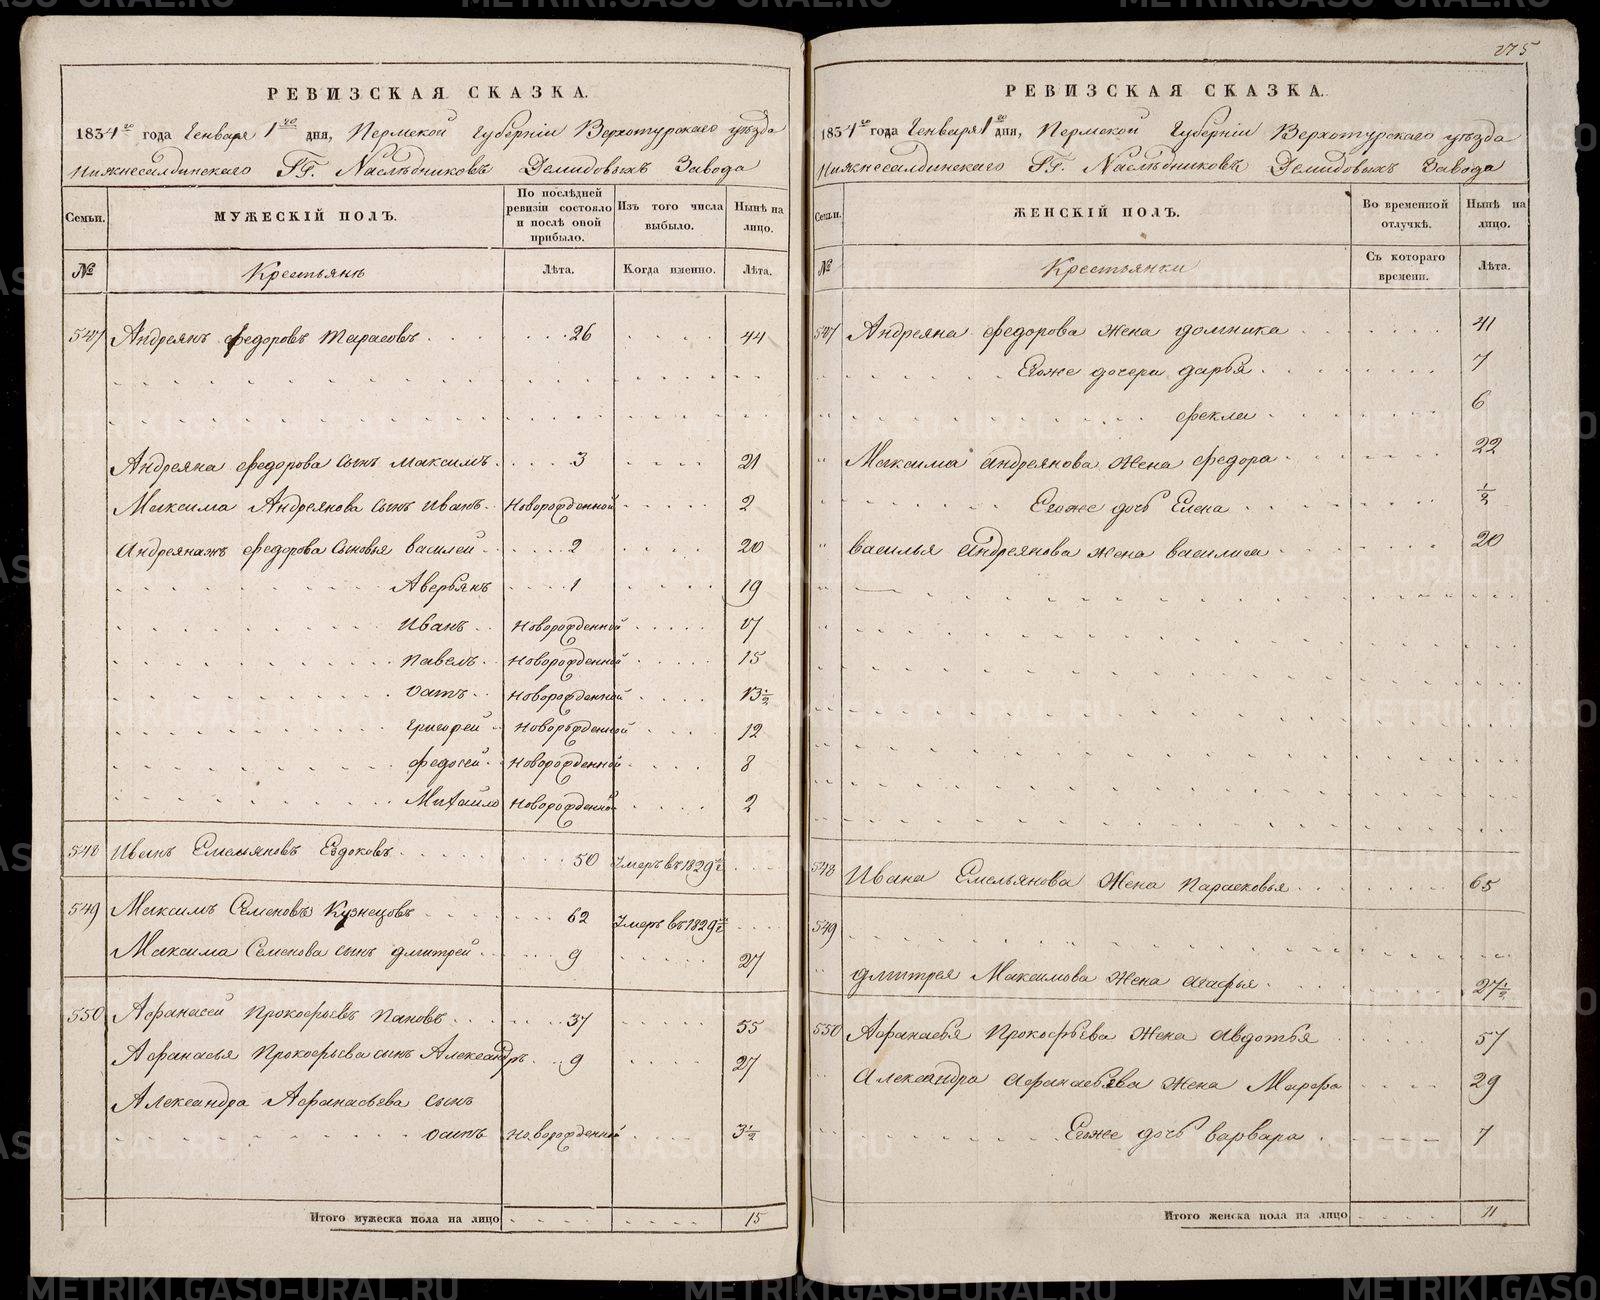 РЕВИЗСКАЯ СКАЗКА.
1834го года Генваря 1го дня, Пермской Губернiи Верхотурскаго уѣзда
Нижнесалдинскаго ГГ. Наслѣдниковъ Демидовыхъ Завода
Семьи.
МУЖЕСКIЙ ПОЛЪ.
По послѣдней ревизiи состояло и послѣ оной прибыло.
Изъ того числа выбыло.
Нынѣ на лицо.
№
Крестьянъ
Лѣта.
Когда именно.
Лѣта.
547 Андреянъ Федоровъ Тарасовъ 26 44
Андреяна Федорова сынъ Максимъ 3 21
Максима Андреянова сынъ Иванъ Новорожденной 2
Андреянажъ Федорова сыновья Василей 2 20
Аверьянъ 1 19
Иванъ Новорожденной 17
Павелъ Новорожденной 15
Осипъ Новорожденной 13½
Григорей Новорожденной 12
Федосей Новорожденной 8
Михайло Новорожденной 2
548 Иванъ Емельяновъ Евдоковъ 50 Умеръ въ 1829
549 Максимъ Семеновъ Кузнецовъ 62 Умеръ въ 1829
Максима Семенова сынъ Дмитрей 9 27
550 Афанасей Прокофьевъ Пановъ 37 55
Афанасья Прокофьева сынъ Александръ 9 27
Александра Афанасьева сынъ
Осипъ Новорожденной 3½
Итого мужеска пола на лицо 15
275
РЕВИЗСКАЯ СКАЗКА.
1834го года Генваря 1го дня, Пермской Губернiи Верхотурскаго уѣзда
Нижнесалдинскаго ГГ. Наслѣдниковъ Демидовыхъ Завода
Семьи.
ЖЕНСКIЙ ПОЛЪ.
Во временной отлучкѣ.
Нынѣ на лицо.
№
Крестьянки
Съ котораго времени.
Лѣта.
547 Андреяна Федорова жена Домника 41
Егоже дочери Дарья 7
Фекла 6
Максима Андреянова жена Федора 22
Егоже дочь Елена ½
Василья Андреянова жена Василиса 20
548 Ивана Емельянова жена Парасковья 65
549
Дмитрея Максимова жена Агафья 27½
550 Афанасья Прокофьева жена Авдотья 57
Александра Афанасьева жена Марфа 29
Егоже дочь Варвара 7
Итого женска пола на лицо 11
METRIKI.GASO-URAL.RU